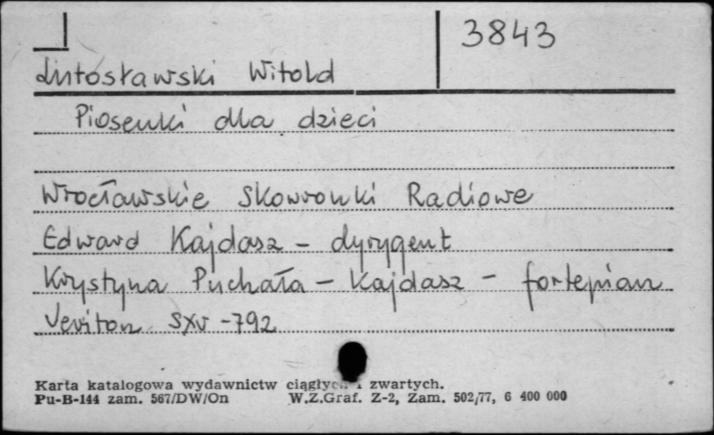 3843
Lutosławski Witold
Piosenki dla dzieci
Wrocławskie Skowronki Radiowe
Edward Kajdasz - dyrygent
Krystyna Puchała - Kajdasz - fortepian
Veriton SXV - 792
Karta katalogowa wydawnictw ciągłych i zwartych.
Pu-B-144 zam. 567/DW/On W.Z.Graf. Z-2, Zam. 502/77, 6 400 000